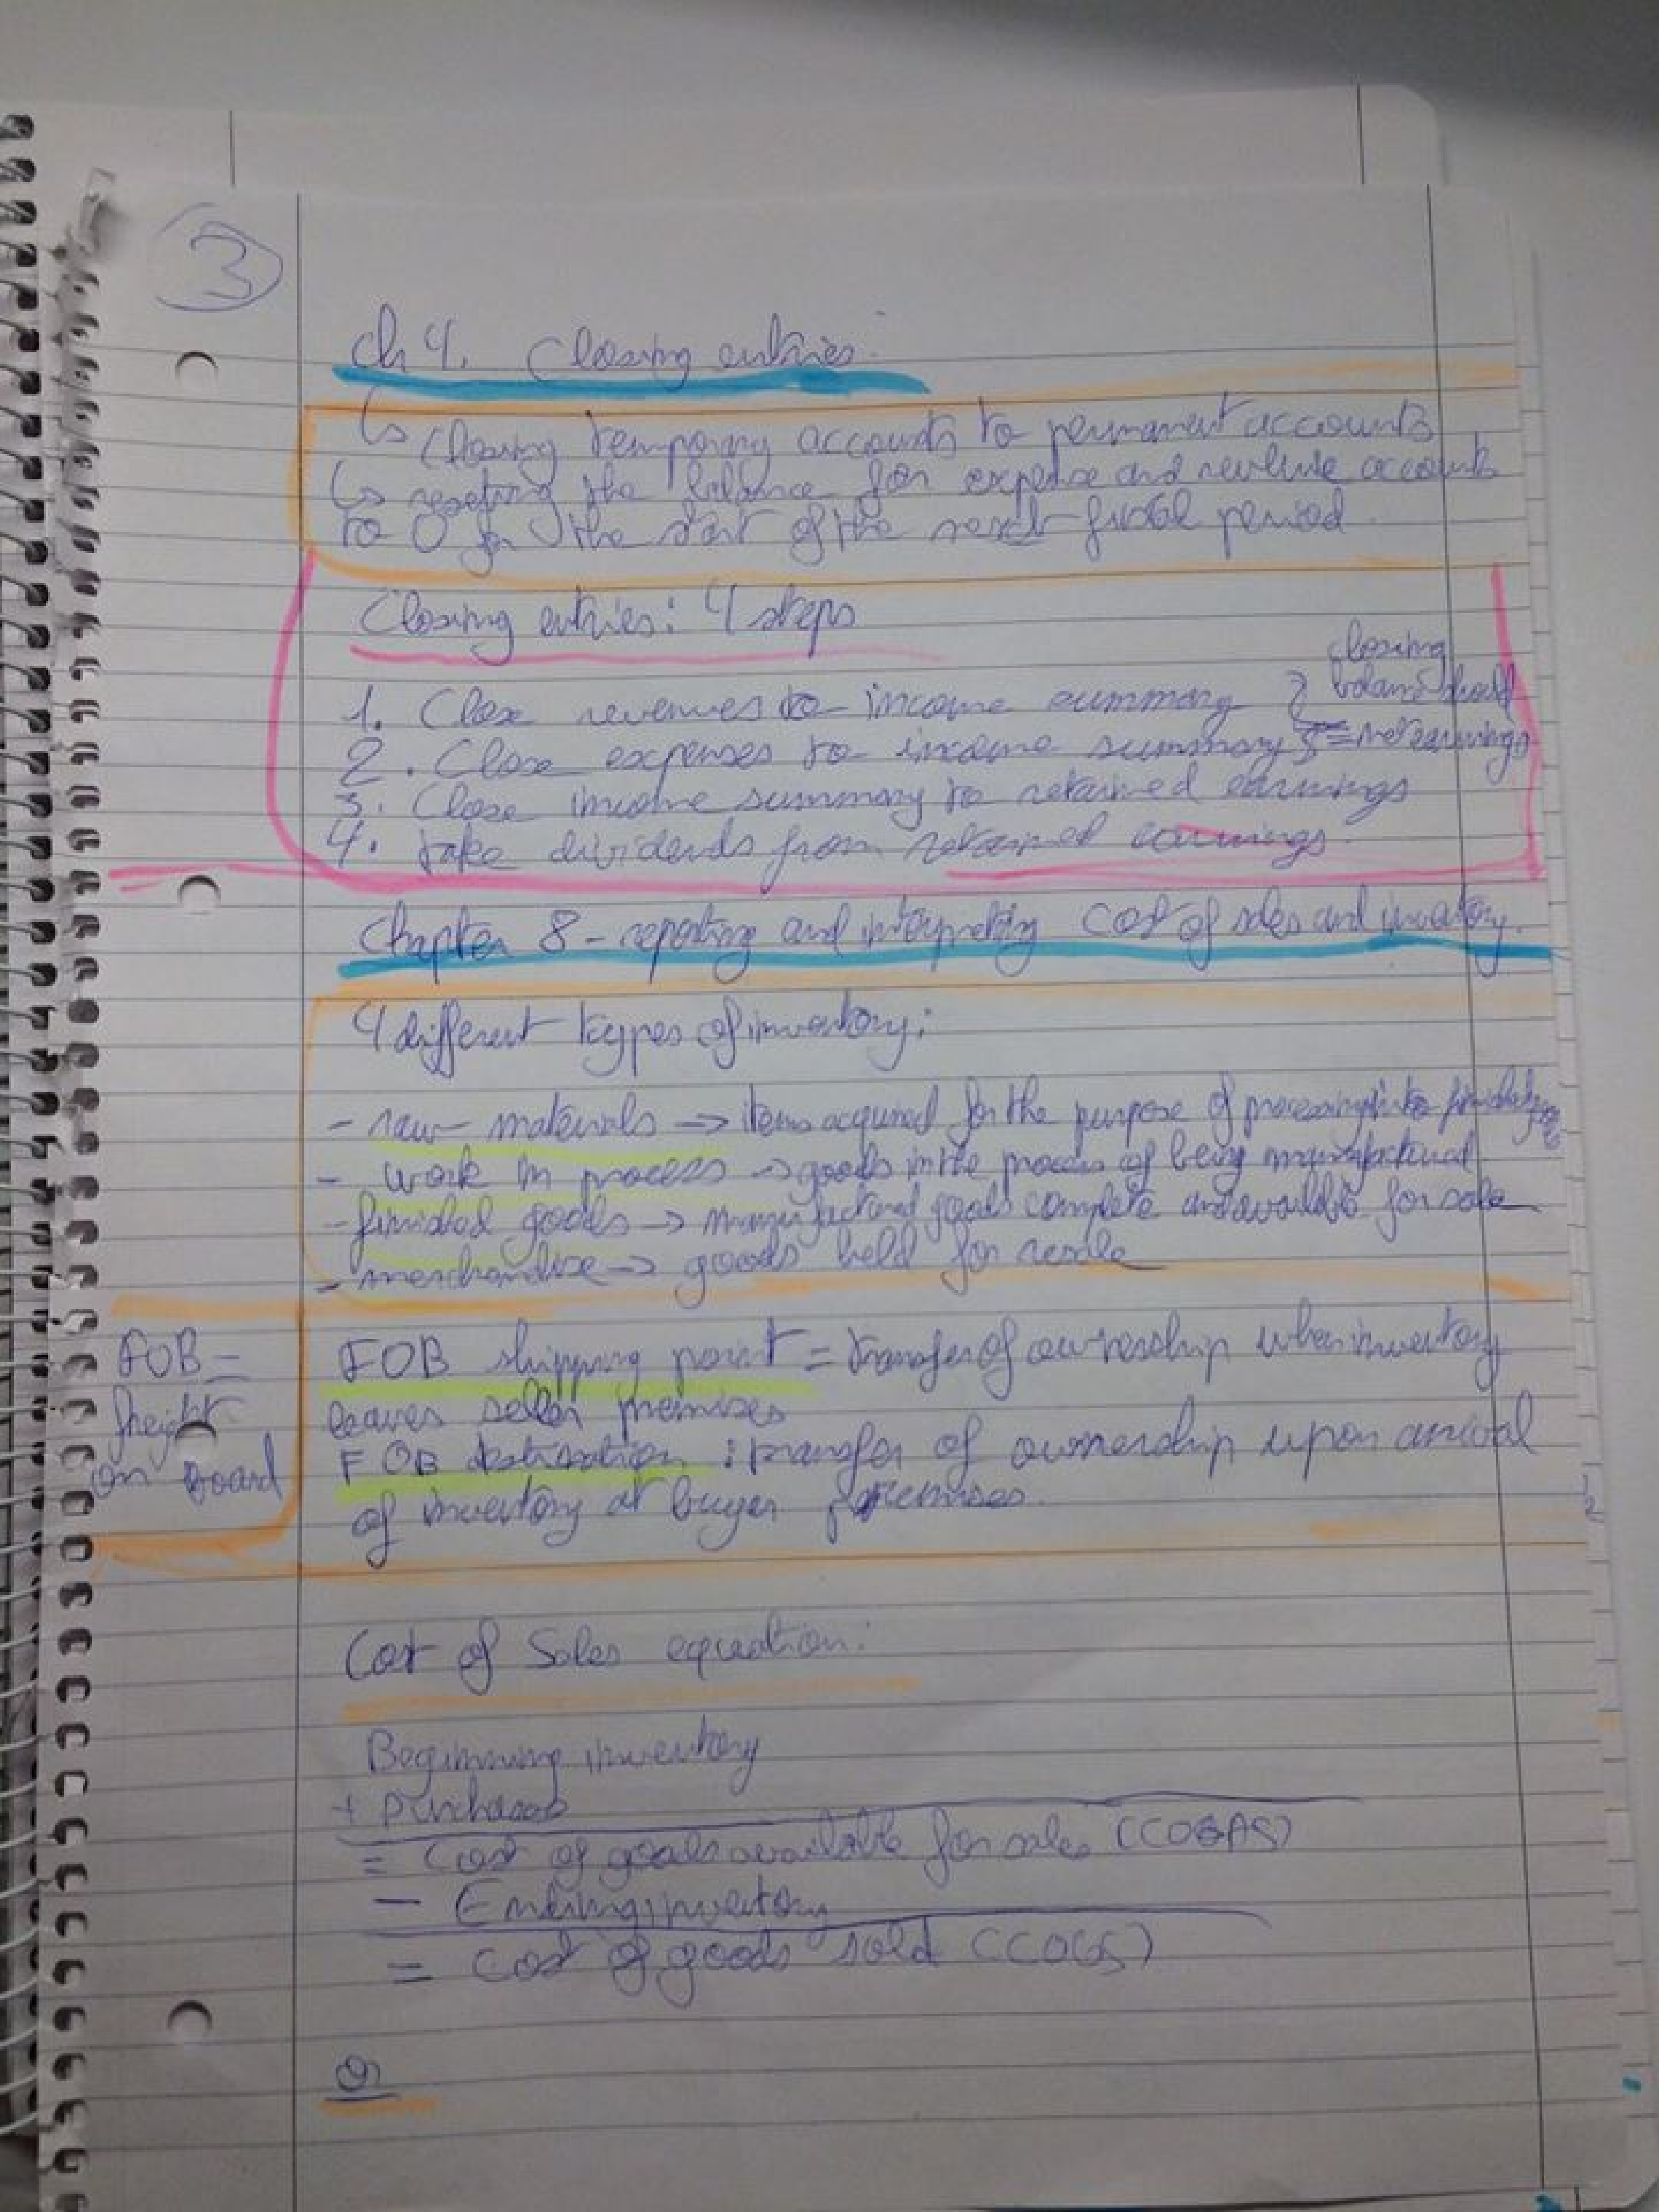 3
Ch 4. Closing entries:
↳ closing temporary accounts to permanent accounts
↳ reseting the balance for expense and revenue accounts
to 0 for the start of the next fiscal period.
Closing entries: 4 steps
closing
balance should
= net earnings
1. Close revenues to income summary
2. Close expenses to income summary
3. Close income summary to retained earnings
4. take dividends from retained earnings.
Chapter 8 - reporting and interpreting cost of sales and inventory.
4 different types of inventory:
- raw materials → items acquired for the purpose of processing into finished
- work in process → goods in the process of being manufactured
- finished goods → manufactured goods complete and available for sale
- merchandise → goods held for resale
FOB =
freight
on board
FOB shipping point = transfer of ownership when inventory
leaves seller premises
FOB destination : transfer of ownership upon arrival
of inventory at buyer premises.
Cost of Sales equation:
Beginning inventory
+ purchases
= Cost of goods available for sales (COGAS)
- Ending inventory
= cost of goods sold (COGS)